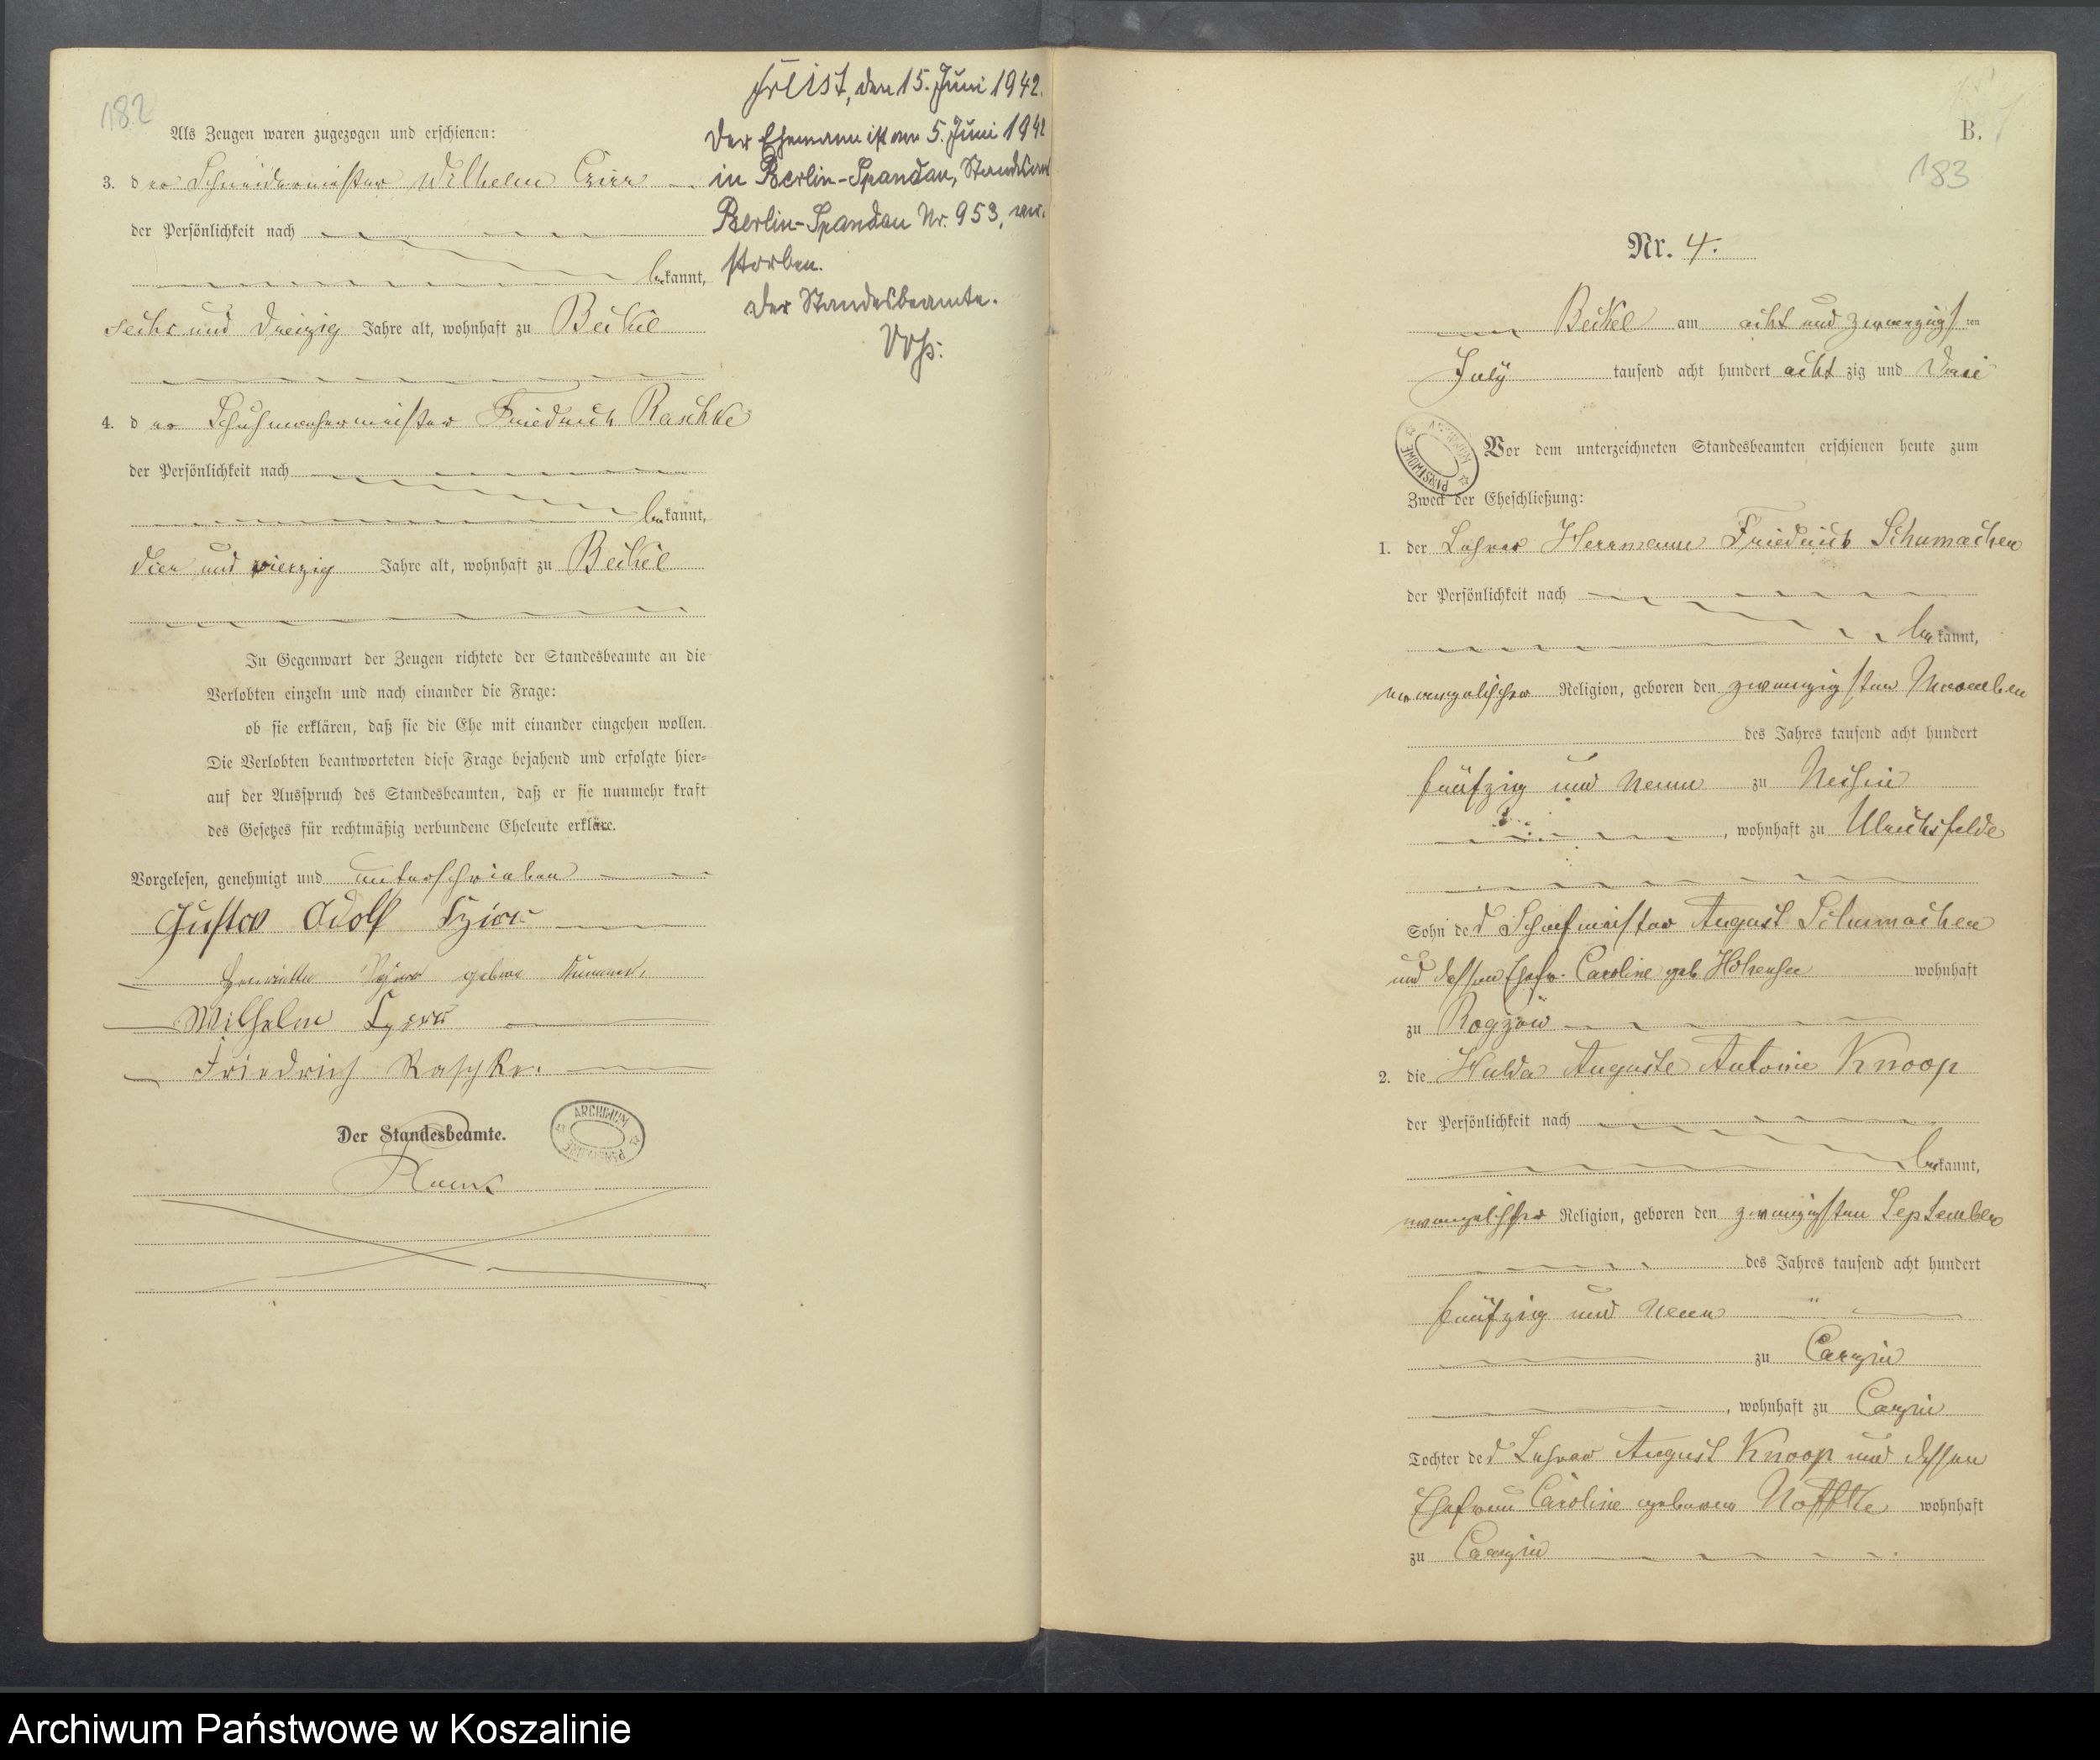 182
Als Zeugen waren zugezogen und erschienen:
3. der Schneidermeister Wilhelm
der Persönlichkeit nach
bekannt,
sechs und dreizig Jahre alt, wohnhaft zu Beckel
4. der Schuhmachermeister Friedrich Raschke
der Persönlichkeit nach
bekannt,
vier und vierzig Jahre alt, wohnhaft zu Beckel
In Gegenwart der Zeugen richtete der Standesbeamte an die
Verlobten einzeln und nach einander die Frage:
ob sie erklären, daß sie die Ehe mit einander eingehen wollen.
Die Verlobten beantworteten diese Frage bejahend und erfolgte hier-
auf der Ausspruch des Standesbeamten, daß er sie nunmehr kraft
des Gesetzes für rechtmäßig verbundene Eheleute erkläre.
Vorgelesen, genehmigt und unterschrieben
Gustav Adolf
Henriette geborne
Wilhelm
Friedrich Raschke.
Der Standesbeamte.
ARCHIWUM
den 15. Juni 1942.
Der Ehemann ist am 5. Juni 1942
in Berlin-Spandau, Standesamt
Berlin-Spandau Nr. 953, ver-
storben.
Der Standesbeamte.
Voß.
B.
183
Nr. 4.
Beckel am acht und zwanzigsten
July tausend acht hundert achtzig und drei
ARCHIWUM PAŃSTWOWE
Vor dem unterzeichneten Standesbeamten erschienen heute zum
Zweck der Eheschließung:
1. der Lehrer Herrmann Friedrich Schumacher
der Persönlichkeit nach
bekannt,
evangelischer Religion, geboren den zwanzigsten November
des Jahres tausend acht hundert
fünfzig und neun zu
, wohnhaft zu Ulrichsfelde
Sohn des Schafmeister August Schumacher
und dessen Ehefr. Caroline geb. wohnhaft
zu Rogzow
2. die Hulda Auguste Antonie Knoop
der Persönlichkeit nach
bekannt,
evangelischer Religion, geboren den zwanzigsten September
des Jahres tausend acht hundert
fünfzig und neun
zu Carzin
, wohnhaft zu Carzin
Tochter des Lehrer August Knoop und dessen
Ehefrau Caroline geborenen Noffke wohnhaft
zu Carzin
Archiwum Państwowe w Koszalinie